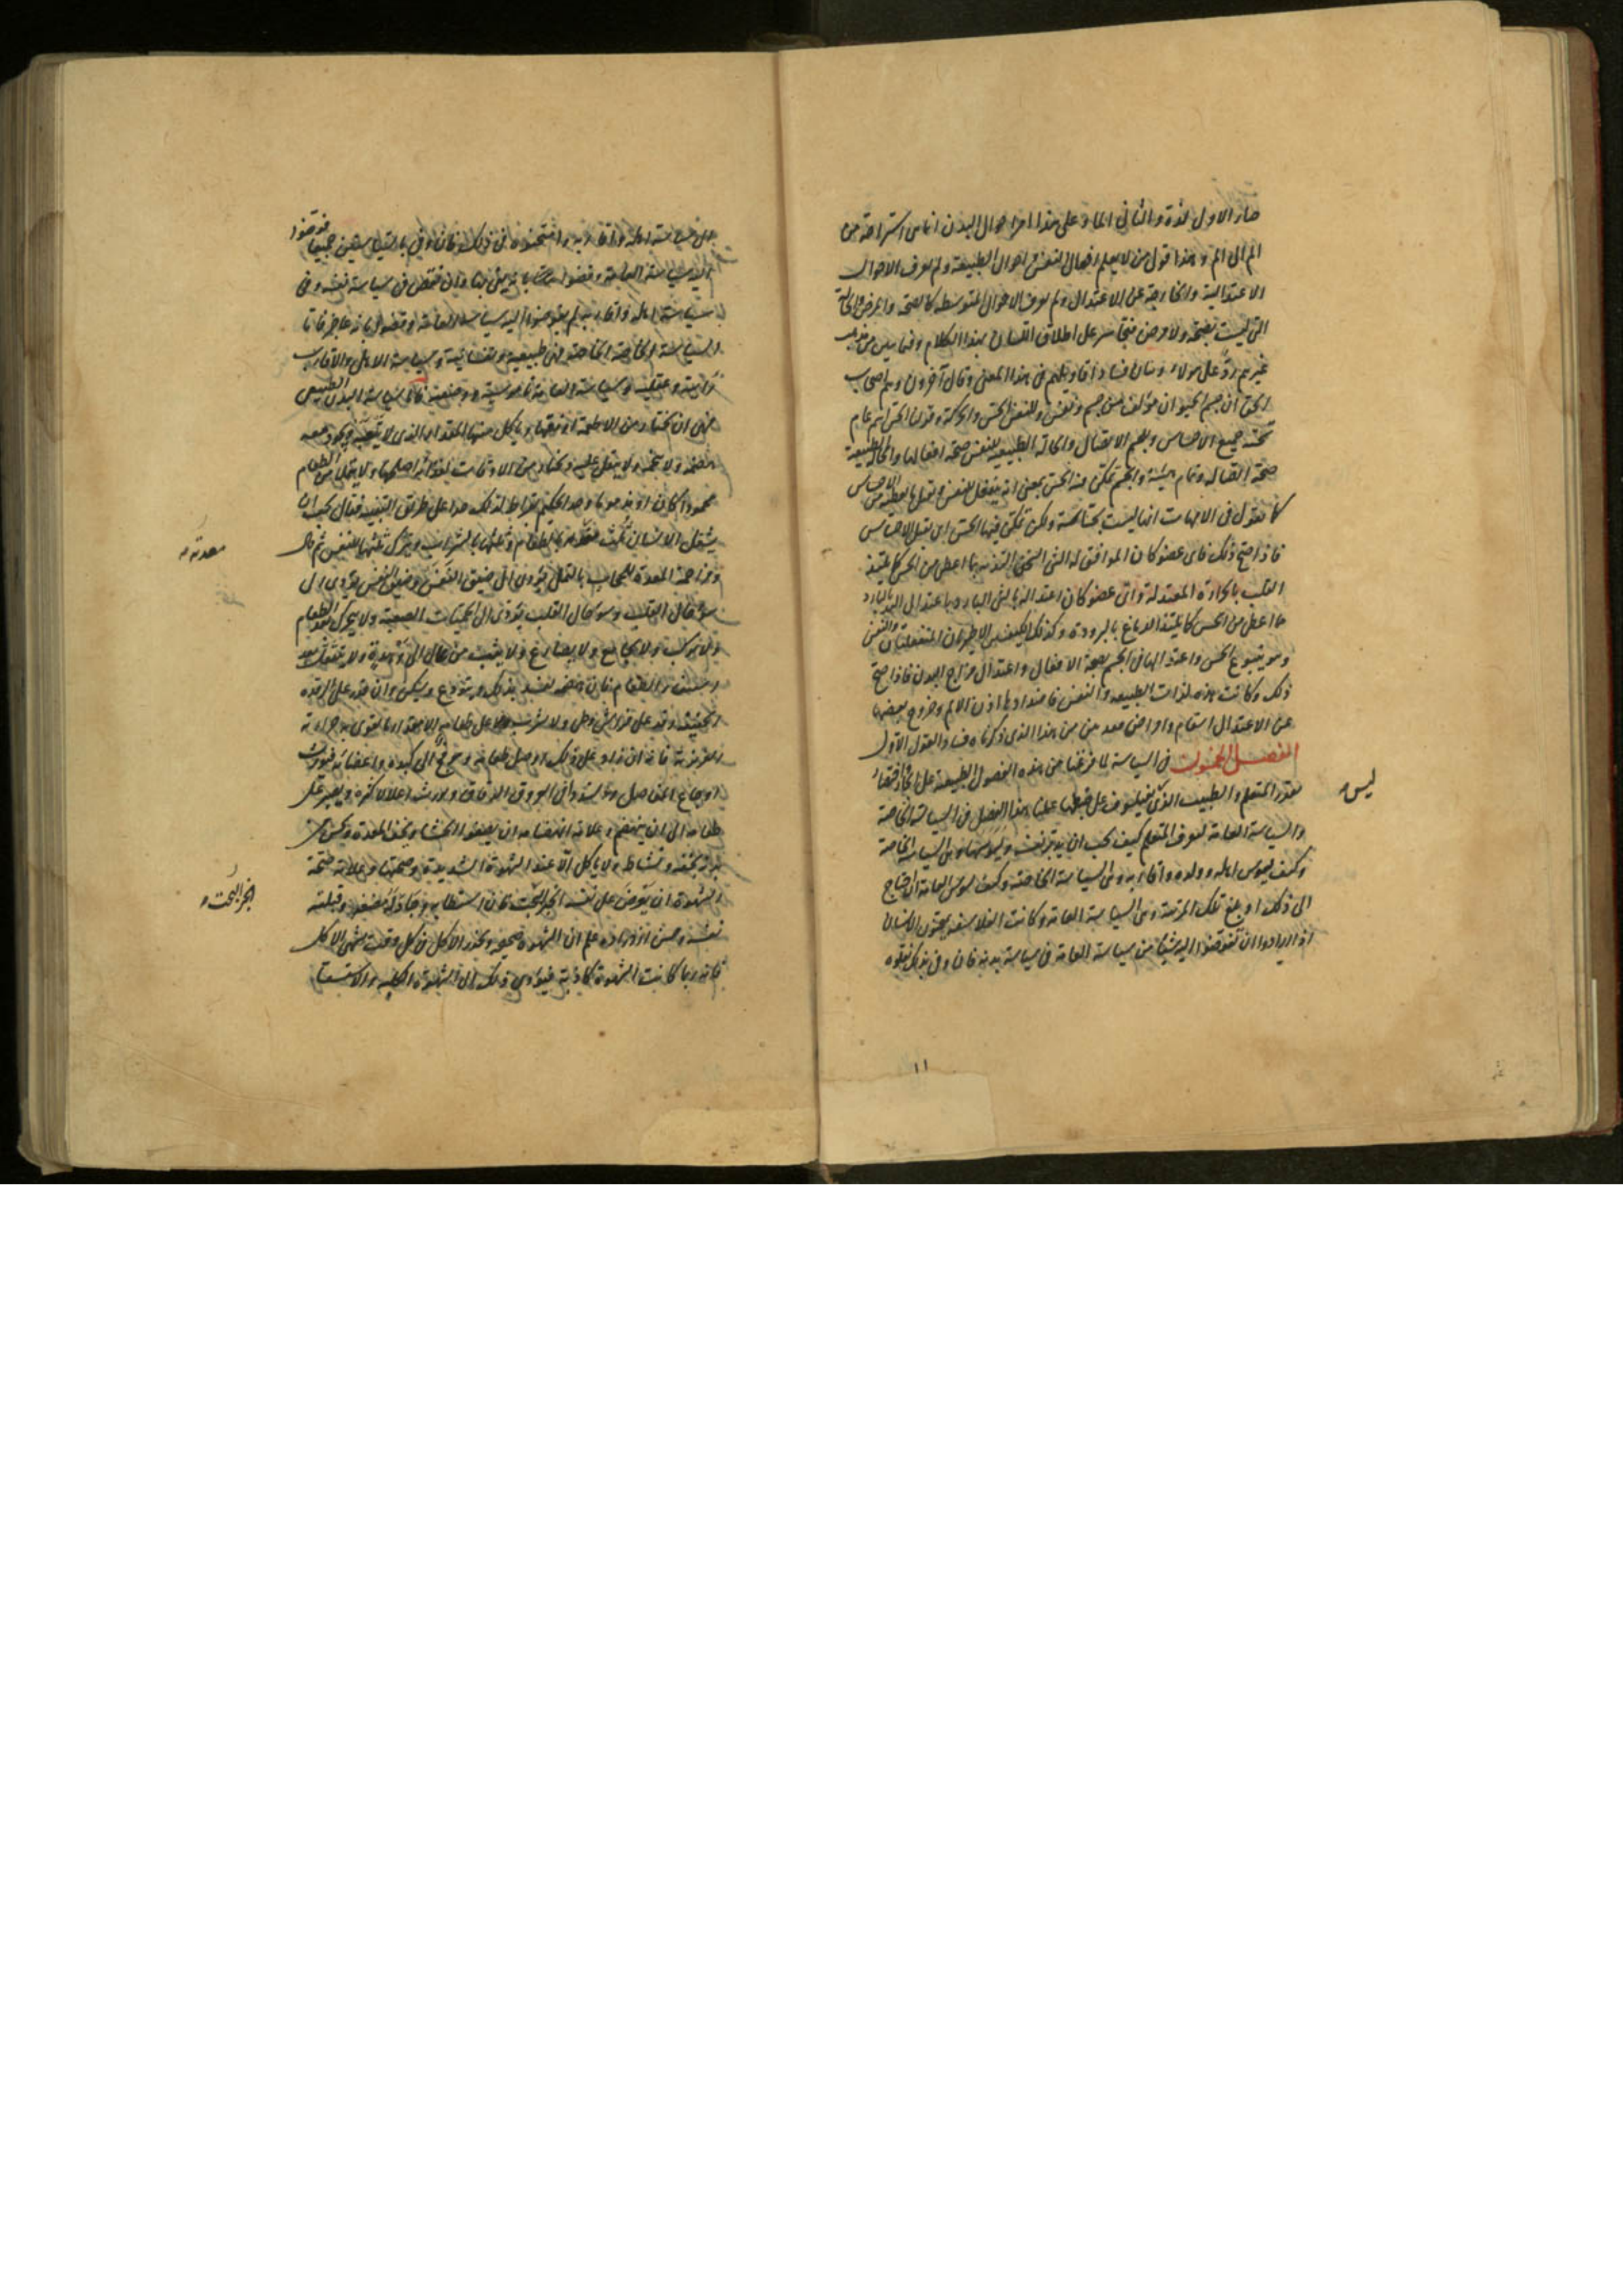 صار الاول لذة والثاني الما وعلى هذا امر احوال البدن انما هي استراحة من
الم الى الم وهذا قول من لا يعلم افعال النفس واحوال الطبيعة ولم يعرف الاحوال
الاعتدالية والخارجة عن الاعتدال ولم يعرف الاحوال المتوسطة كالصحة والمرض والحالة
التي ليست بصحة ولا مرض فتجاسر على اطلاق اللسان بهذا الكلام وفيما بين من مذهب
غيرهم رد على هولاء وبيان فساد اقاويلهم في هذا المعنى وقال آخرون وهم اصحاب
الحق ان جسم الحيوان مؤلف من جسم ونفس وللنفس الحس والحركة وقولنا الحس اسم عام
تحته جميع الاحساس وللجسم الاتصال والحالة الطبيعية للنفس صحة افعالها والحالة الطبيعية
صحة اتصاله وتمام هيئته والجسم تمكن فيه الحس بمعنى انه ينفعل للنفس ويقبل ما تعطيه من الاحساس
كما نقول في الامهات انها ليست بحساسة ولكن تمكن فيها الحس اي تقبل الاحساس
فاذا صح ذلك فاي عضو كان الموافق له الشي السخن التذ به بما اعطي من الحس كما يلتذ
القلب بالحرارة المعتدلة واي عضو كان اعتداله بالشي البارد باعتدال التذ بالبارد
بما اعطي من الحس كما يلتذ الدماغ بالبرودة وكذلك الكيفيتين الاخريان المنفعلتان والنفس
وهو ينبوع الحس واعتدالها في الجسم بصحة الافعال واعتدال مزاج البدن فاذا صح
ذلك وكانت هذه لذات الطبيعة والنفس فاضدادها اذن الالم وخروج بعضها
عن الاعتدال اسقام وامراض فقد تبين من هذا الذي ذكرناه فساد القول الاول
الفصل الخمسون في السياسة لما فرغنا من هذه الفصول الطبيعية على
المتعلم والطبيب الذي علينا هذا الفصل في السياسة الخاصة
والسياسة العامة ليعرف المتعلم كيف يجب ان يدبر نفسه ويسوسها وهي السياسة الخاصة
وكيف يسوس اهله وولده واقاربه وهي السياسة الخاصة وكيف يسوس العامة ان احتاج
الى ذلك او بلغ تلك المرتبة وهي السياسة العامة وكانت الفلاسفة يمتحنون الانسان
اذا ارادوا ان يفوضوا اليه شيئا من سياسة العامة في سياسة بدنه فان وفى بذلك نقلوه
ليس
١١
الى سياسة اهله واقاربه وامتحنوه في ذلك فان وفى بالسياستين جميعا فوضوا
اليه سياسة العامة
سياسة اهله واقاربه لم يفوضوا اليه سياسة العامة
والسياسة الخاصة فهي طبيعية ونفسانية وسياسة الاهل والاقارب
وعقلية وسياسة العامة ناموسية فاما سياسة البدن الطبيعي
فهي ان يختار من الاطعمة اوفقها وياكل منها المقدار الذي لا يتعبه ويجود معه
هضمه ولا يتخمه ولا يثقل عليه ويختار من الاوقات اصلحها ولا يمتلئ من الطعام
محمودا كان او مذموما وحد الحكيم بقراط لذلك حدا على طريق التنبيه فقال يجب ان
يشغل الانسان ثلث معدته بالطعام وثلثها بالشراب ويترك ثلثها للنفس ثم قال
ومزاحمة المعدة للحجاب بالثقل يؤدي الى ضيق النفس وضيق النفس يؤدي الى
سوء حال القلب وسوء حال القلب يؤدي الى الحميات الصعبة ولا يتحرك بعد الطعام
ولا يركب ولا يجامع ولا يصارع ولا يثب من عال الى وهدة
الطعام فان هضمه يفسد بذلك ويتودع ويسكن وان قدر على الرقدة
رقد على فراش وطي ولا يشرب على طعامه الا مقدار ما تقوى به حرارته
الغريزية فانه ان زاد على ذلك ارسل طعامه وهو فج الى كبده واعضائه فيورث
اوجاع المفاصل والسدد في العروق الدقاق ويورث اعلالا كثيرة ويصبر على
طعامه الى ان ينهضم وعلامة انهضامه ان يصفو الجشا وتخف المعدة ويحس من
بدنه بخفة ونشاط ولا ياكل الا عند الشهوة الشديدة وصحتها وعلامة صحة
الشهوة ان يعرض على نفسه الخبز البحت فان استطابه وقبلته
نفسه وحسن ازدراده علم ان الشهوة صحيحة ويحذر الاكل في كل وقت يشتهي الاكل
فانه ربما كانت الشهوة كاذبة فيؤدي ذلك الى الشهوة الكلبية
معدته
الخبز البحت